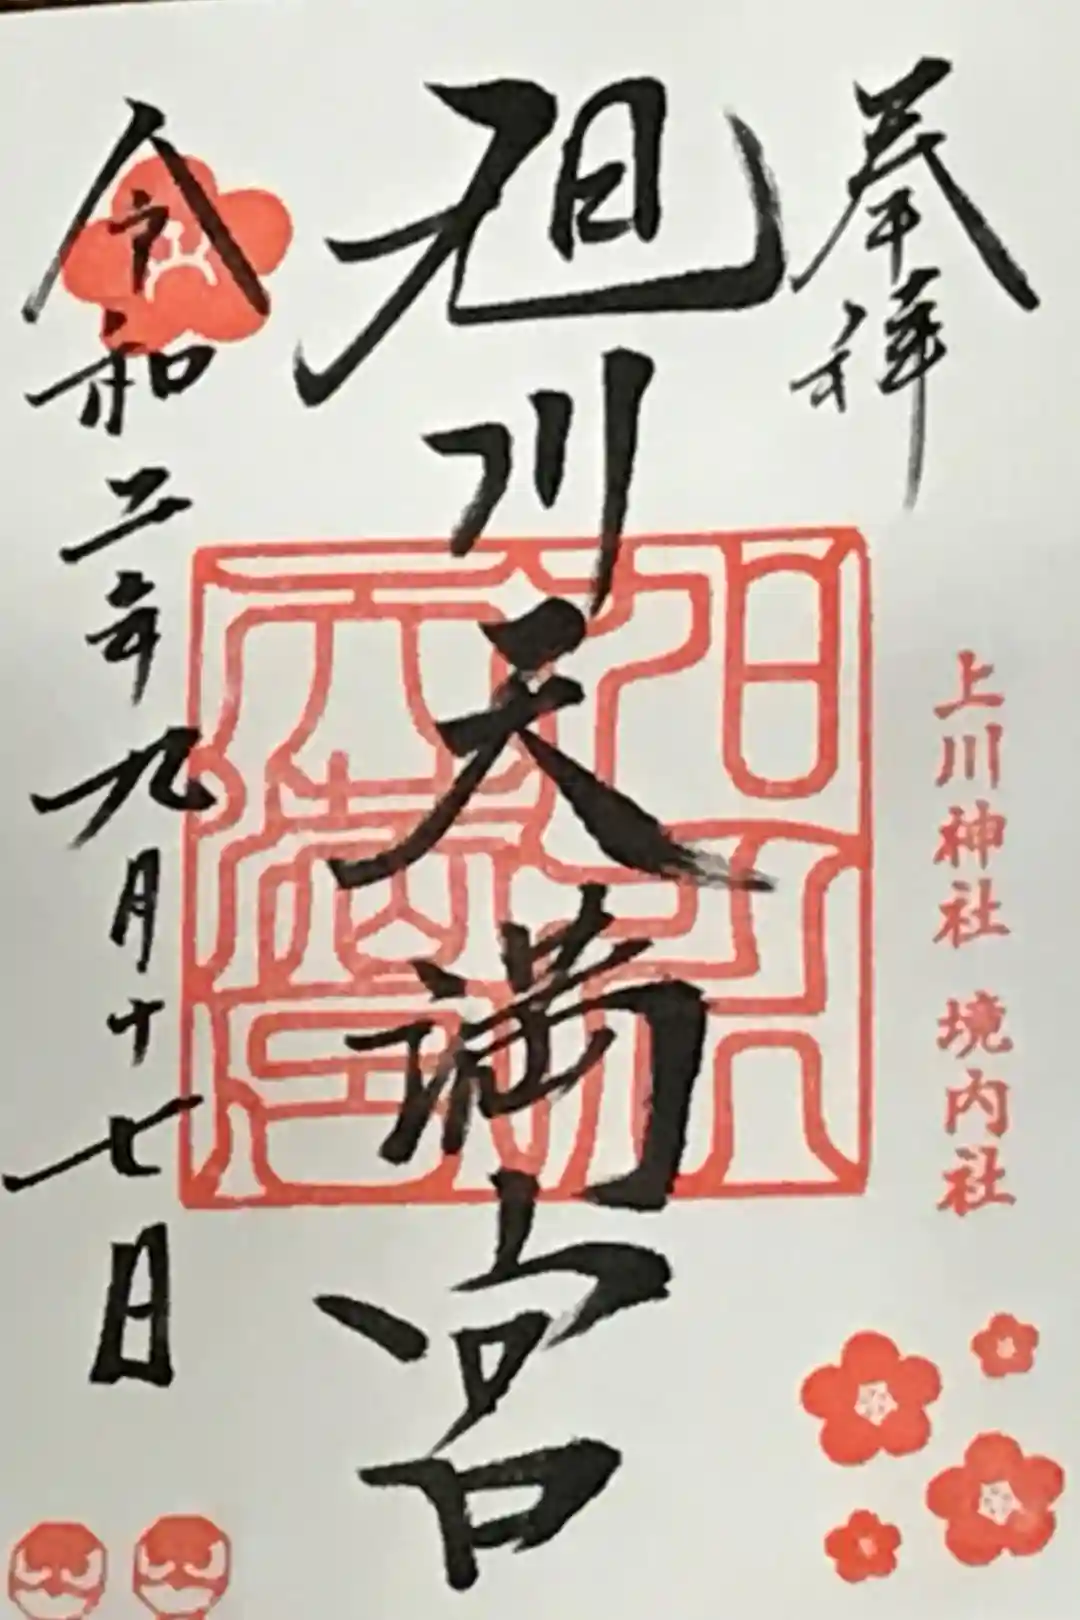 奉拝
上川神社 境内社
旭川天満宮
令和二年九月十七日